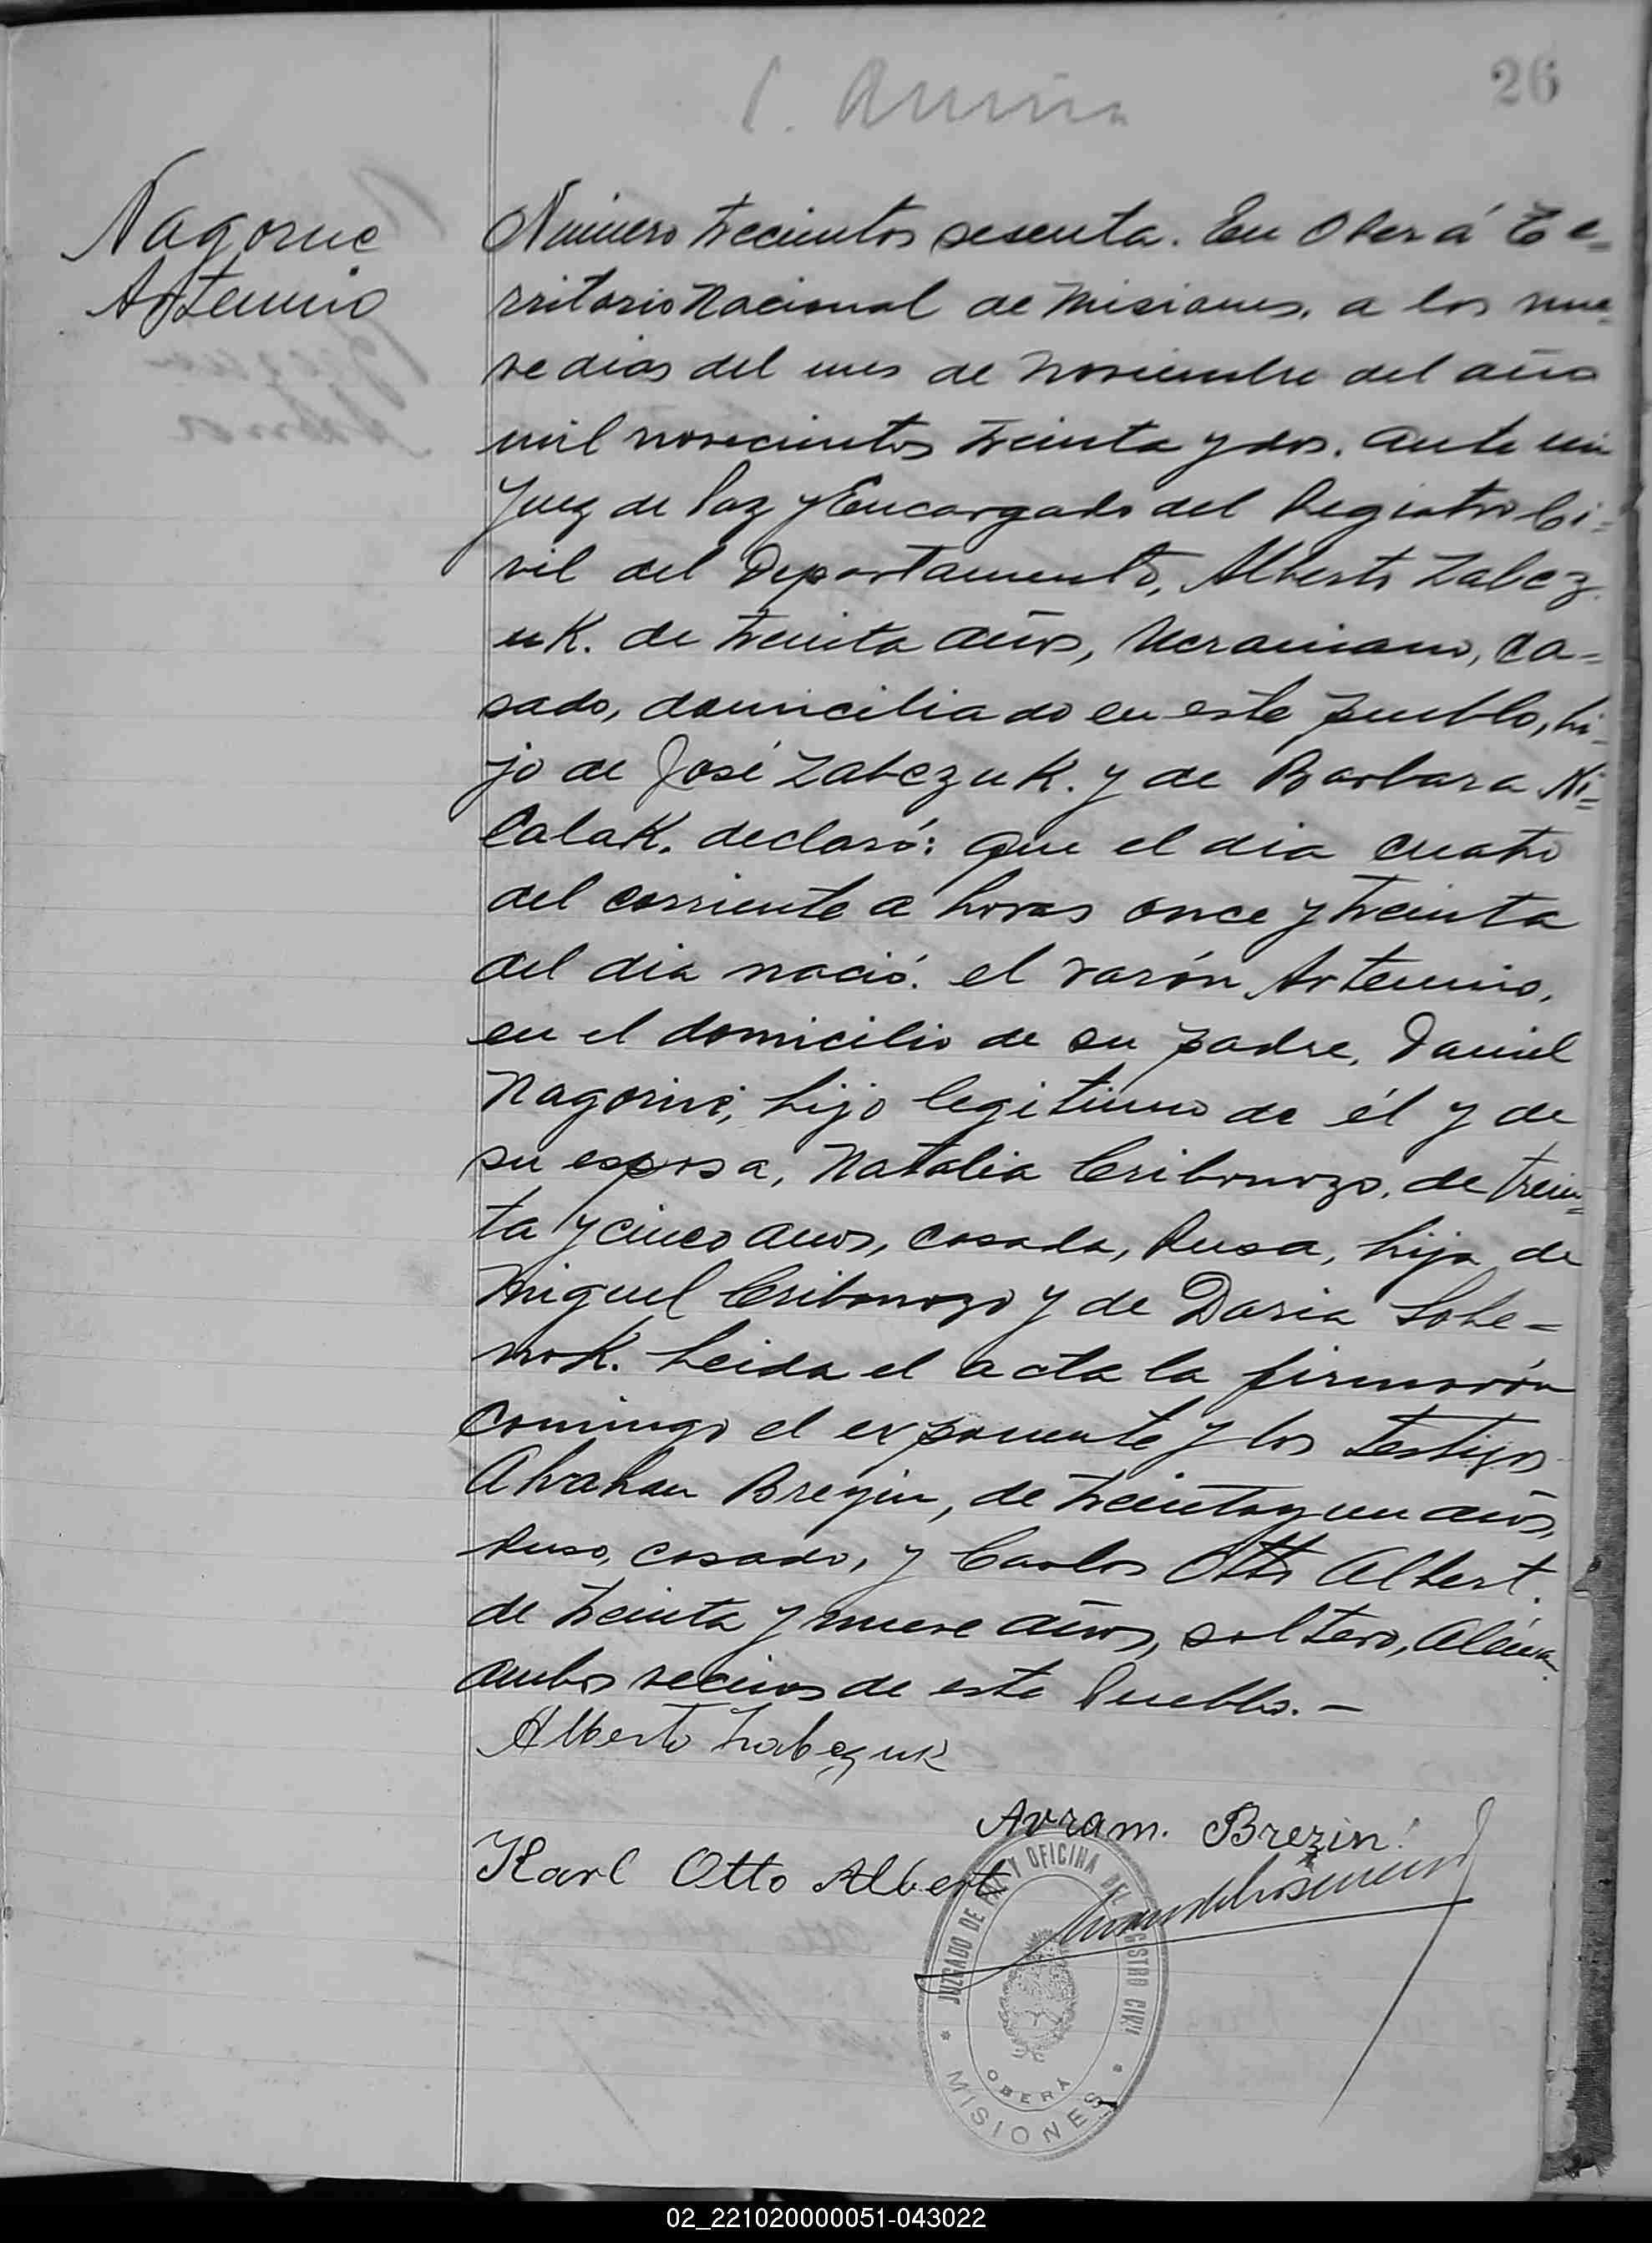 26
Nagorne
Artemio
Número trecientos sesenta. En Oberá Te=
rritorio Nacional de Misiones, a los nue=
ve dias del mes de Noviembre del año
mil novecientos treinta y dos. ante mi
Juez de Paz y Encargado del Registro Ci=
vil del Departamento, Alberto Zabcz
uk. de treinta años, Ucraniano, ca=
sado, domiciliado en este pueblo, hi=
jo de José Zabczuk. y de Barbara Ni=
calak. declaró: que el dia cuatro
del corriente a horas once y treinta
del dia nació. el varón Artemio,
en el domicilio de su padre, Daniel
Nagorne, hijo legitimo de él y de
su esposa, Natalia Cribonozo, de trein=
ta y cinco anos, casada, Rusa, hija de
Miguel Cribonozo y de Daria
Leida el acta la firmarón
conmingo el exponente y los testigos
Abrahan Brezin, de treinta y un años,
Ruso, casado, y Carlos Otto Albert.
de treinta y nueve años, soltero, Aléman
ambos vecinos de este Pueblo. -
Alberto Zabczuk
Avram. Brezin
Karl Otto Albert
JUZGADO DE PAZ Y OFICINA DEL REGISTRO CIVIL
OBERÁ
MISIONES
02_221020000051-043022